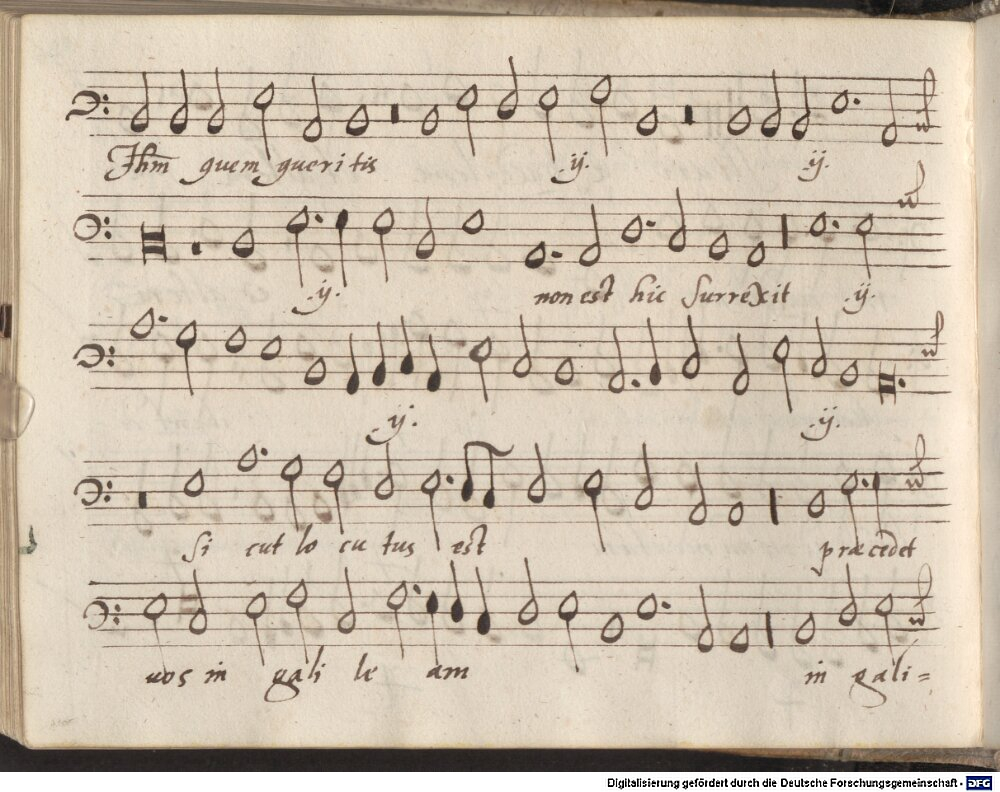 Jhm̄ quem queritis .ij. .ij.
.ij. non est hic surrexit .ij.
.ij. .ij.
si cut lo cu tus est præcedet
uos in gali le am in gali=
Digitalisierung gefördert durch die Deutsche Forschungsgemeinschaft - DFG